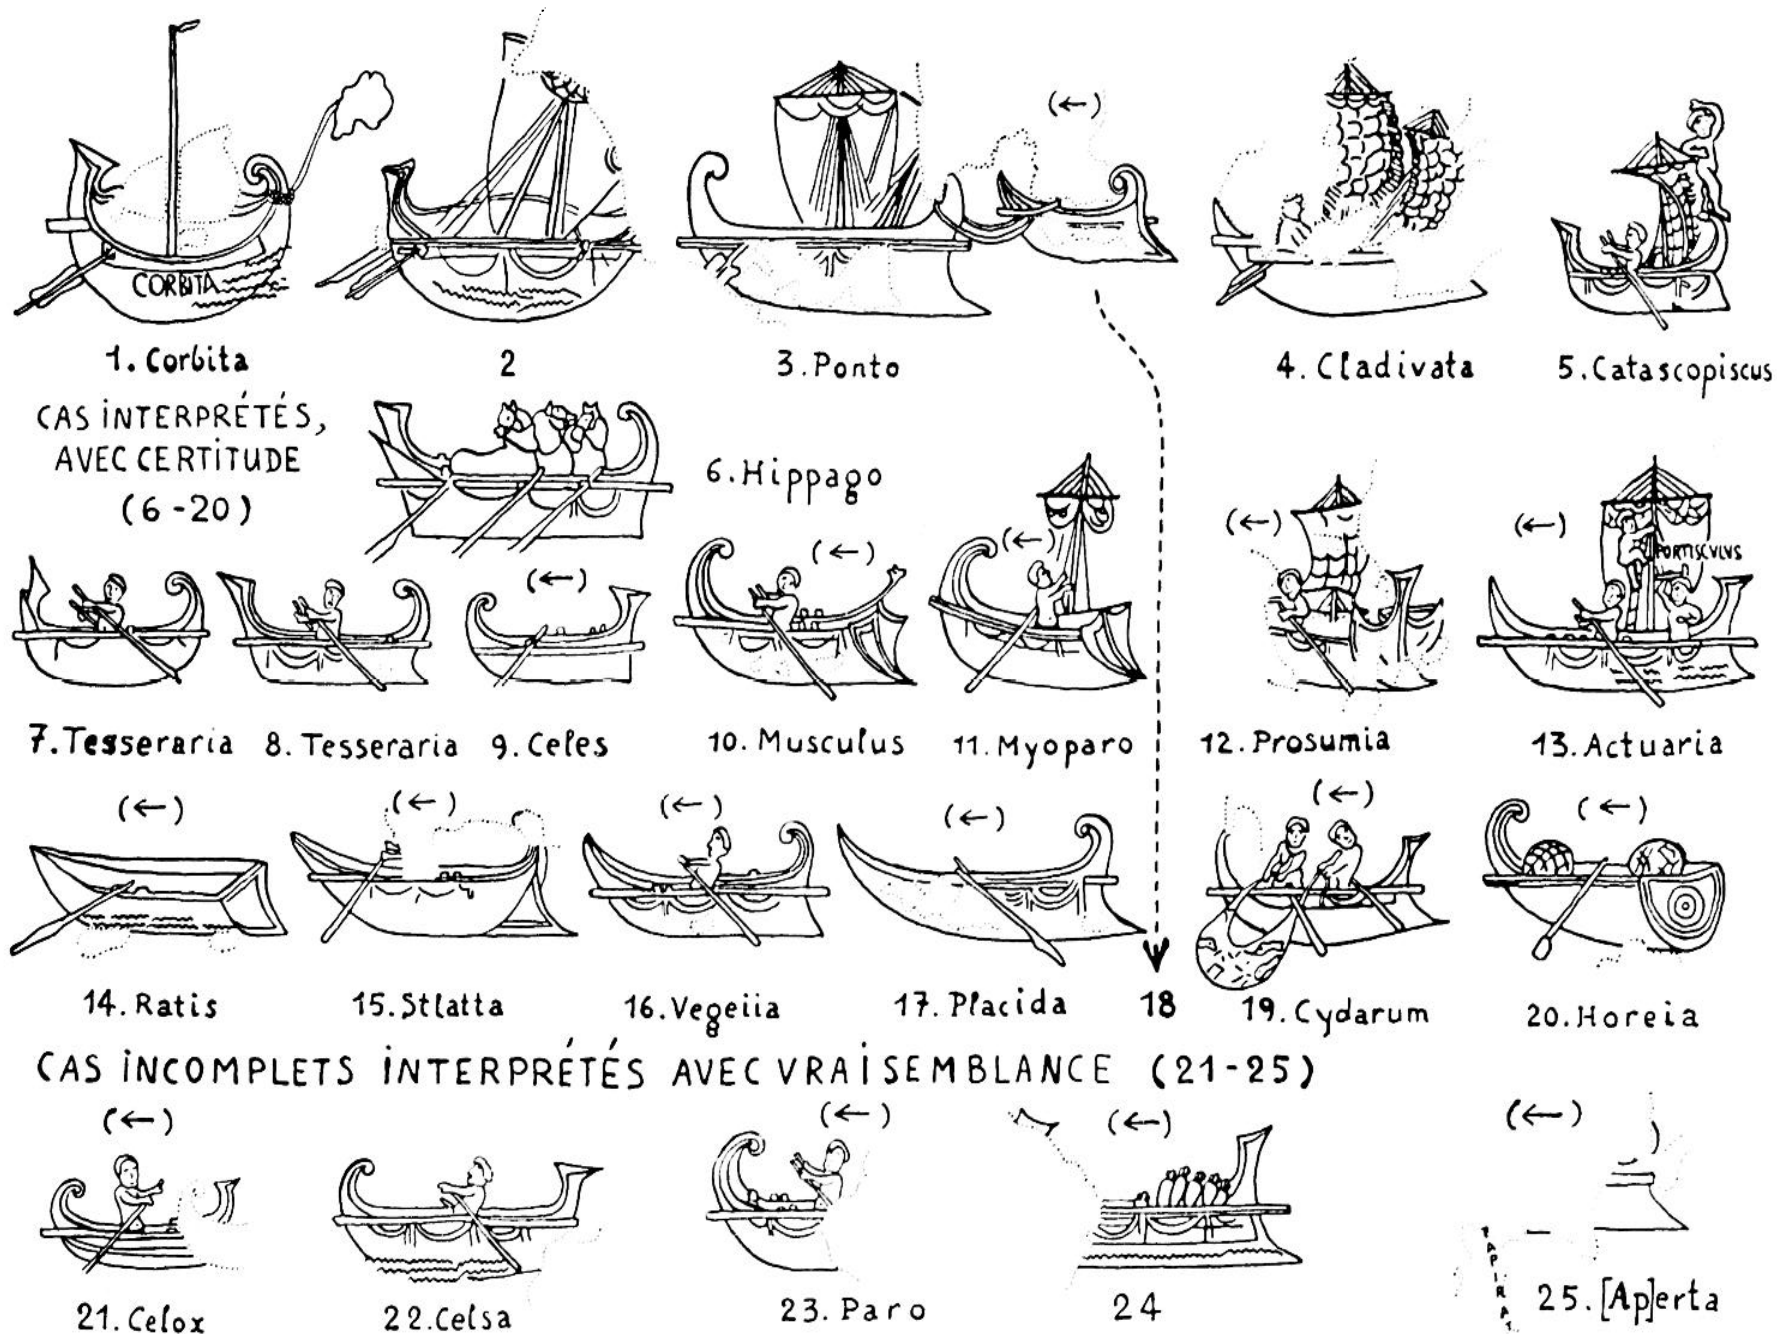 CORBITA
1. Corbita
2
3. Ponto
4. Cladivata
5. Catascopiscus
(←)
CAS INTERPRÉTÉS,
AVEC CERTITUDE
(6-20)
6. Hippago
(←)
(←)
(←)
(←)
(←)
PORTISCVLVS
7. Tesseraria
8. Tesseraria
9. Celes
10. Musculus
11. Myoparo
12. Prosumia
13. Actuaria
(←)
(←)
(←)
(←)
(←)
(←)
14. Ratis
15. Stlatta
16. Vegeiia
17. Placida
18
19. Cydarum
20. Horeia
CAS INCOMPLETS INTERPRÉTÉS AVEC VRAISEMBLANCE (21-25)
(←)
(←)
(←)
(←)
21. Celox
22. Celsa
23. Paro
24
25. [Ap]erta